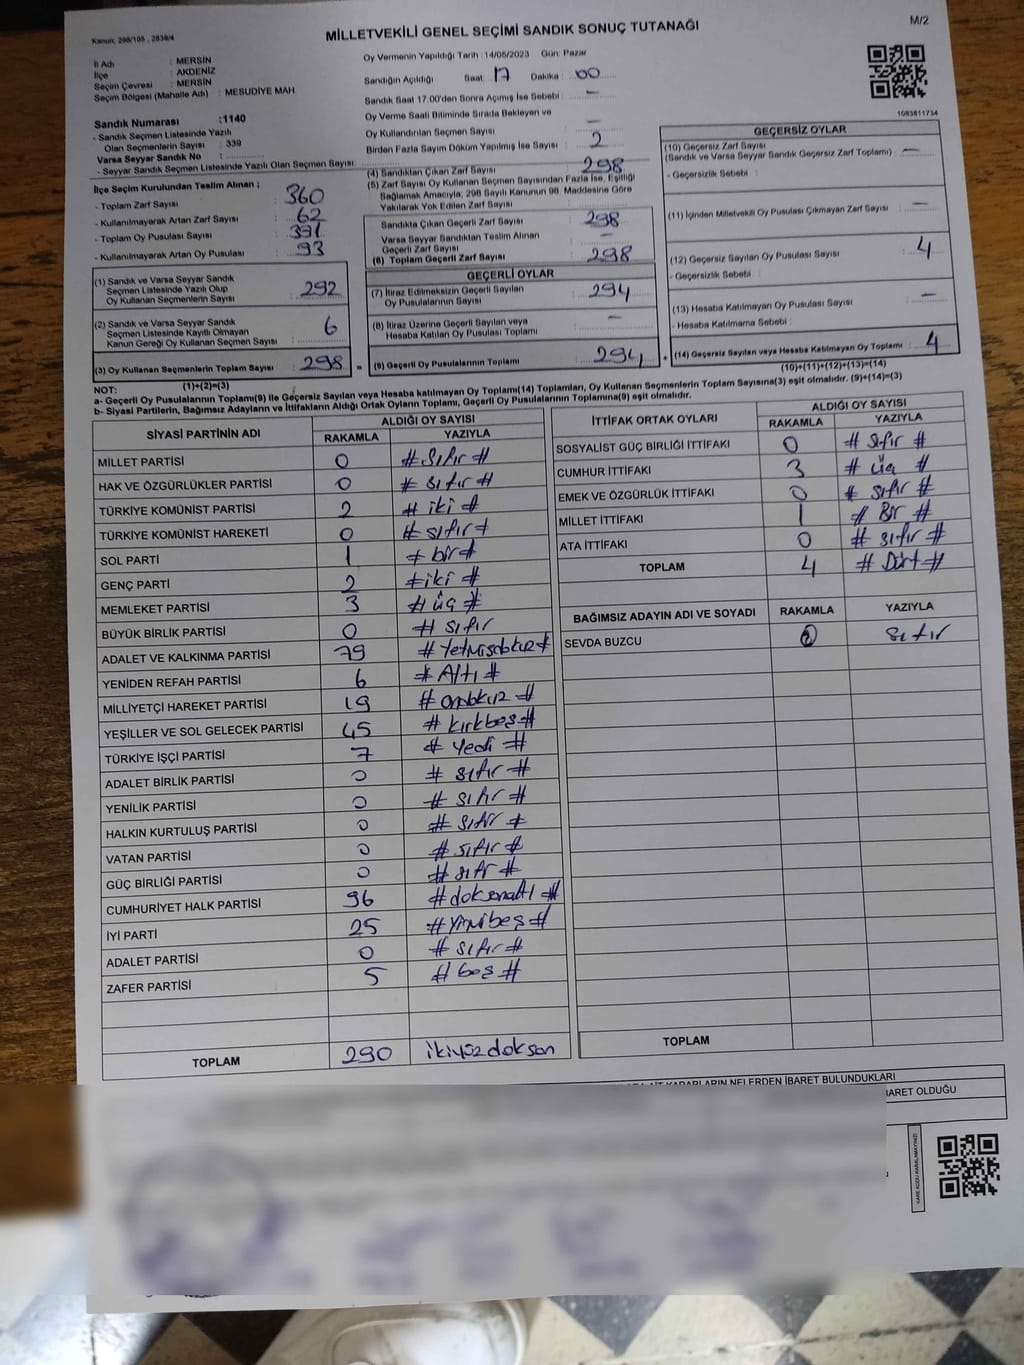 Kanun: 298/105 , 2839/4
MİLLETVEKİLİ GENEL SEÇİMİ SANDIK SONUÇ TUTANAĞI
M/2
İl Adı : MERSİN
İlçe : AKDENİZ
Seçim Çevresi : MERSİN
Seçim Bölgesi (Mahalle Adı) : MESUDİYE MAH
Sandık Numarası :1140
- Sandık Seçmen Listesinde Yazılı
Olan Seçmenlerin Sayısı : 339
Varsa Seyyar Sandık No :
- Seyyar Sandık Seçmen Listesinde Yazılı Olan Seçmen Sayısı:
Oy Vermenin Yapıldığı Tarih :14/05/2023 Gün: Pazar
Sandığın Açıldığı Saat : 17 Dakika : 00
Sandık Saat 17:00'den Sonra Açımış İse Sebebi : —
Oy Verme Saati Bitiminde Sırada Bekleyen ve
Oy Kullandırılan Seçmen Sayısı : —
Birden Fazla Sayım Döküm Yapılmış İse Sayısı : 2
1083811734
İlçe Seçim Kurulundan Teslim Alınan ;
- Toplam Zarf Sayısı : 360
- Kullanılmayarak Artan Zarf Sayısı : 62
- Toplam Oy Pusulası Sayısı : 391
- Kullanılmayarak Artan Oy Pusulası : 93
(1) Sandık ve Varsa Seyyar Sandık
Seçmen Listesinde Yazılı Olup
Oy Kullanan Seçmenlerin Sayısı : 292
(2) Sandık ve Varsa Seyyar Sandık
Seçmen Listesinde Kayıtlı Olmayan
Kanun Gereği Oy Kullanan Seçmen Sayısı : 6
(3) Oy Kullanan Seçmenlerin Toplam Sayısı : 298
(1)+(2)=(3)
(4) Sandıktan Çıkan Zarf Sayısı : 298
(5) Zarf Sayısı Oy Kullanan Seçmen Sayısından Fazla İse, Eşitliği
Sağlamak Amacıyla; 298 Sayılı Kanunun 98. Maddesine Göre
Yakılarak Yok Edilen Zarf Sayısı :
Sandıkta Çıkan Geçerli Zarf Sayısı : 298
Varsa Seyyar Sandıktan Teslim Alınan
Geçerli Zarf Sayısı : —
(6) Toplam Geçerli Zarf Sayısı : 298
GEÇERLİ OYLAR
(7) İtiraz Edilmeksizin Geçerli Sayılan
Oy Pusulalarının Sayısı : 294
(8) İtiraz Üzerine Geçerli Sayılan veya
Hesaba Katılan Oy Pusulası Toplamı : —
(9) Geçerli Oy Pusulalarının Toplamı : 294
GEÇERSİZ OYLAR
(10) Geçersiz Zarf Sayısı
(Sandık ve Varsa Seyyar Sandık Geçersiz Zarf Toplamı) : —
- Geçersizlik Sebebi :
(11) İçinden Milletvekili Oy Pusulası Çıkmayan Zarf Sayısı : —
(12) Geçersiz Sayılan Oy Pusulası Sayısı : 4
- Geçersizlik Sebebi :
(13) Hesaba Katılmayan Oy Pusulası Sayısı : —
- Hesaba Katılmama Sebebi :
(14) Geçersiz Sayılan veya Hesaba Katılmayan Oy Toplamı : 4
(10)+(11)+(12)+(13)=(14)
NOT:
a- Geçerli Oy Pusulalarının Toplamı(9) ile Geçersiz Sayılan veya Hesaba katılmayan Oy Toplamı(14) Toplamları, Oy Kullanan Seçmenlerin Toplam Sayısına(3) eşit olmalıdır. (9)+(14)=(3)
b- Siyasi Partilerin, Bağımsız Adayların ve İttifakların Aldığı Ortak Oyların Toplamı, Geçerli Oy Pusulalarının Toplamına(9) eşit olmalıdır.
SİYASİ PARTİNİN ADI ALDIĞI OY SAYISI
RAKAMLA YAZIYLA
MİLLET PARTİSİ 0 # Sıfır #
HAK VE ÖZGÜRLÜKLER PARTİSİ 0 # sıfır #
TÜRKİYE KOMÜNİST PARTİSİ 2 # iki #
TÜRKİYE KOMÜNİST HAREKETİ 0 # sıfır #
SOL PARTİ 1 # bir #
GENÇ PARTİ 2 # iki #
MEMLEKET PARTİSİ 3 # üç #
BÜYÜK BİRLİK PARTİSİ 0 # sıfır
ADALET VE KALKINMA PARTİSİ 79 # Yetmişdokuz #
YENİDEN REFAH PARTİSİ 6 # Altı #
MİLLİYETÇİ HAREKET PARTİSİ 19 # ondokuz #
YEŞİLLER VE SOL GELECEK PARTİSİ 45 # kırkbeş #
TÜRKİYE İŞÇİ PARTİSİ 7 # Yedi #
ADALET BİRLİK PARTİSİ 0 # sıfır #
YENİLİK PARTİSİ 0 # sıfır #
HALKIN KURTULUŞ PARTİSİ 0 # sıfır #
VATAN PARTİSİ 0 # sıfır #
GÜÇ BİRLİĞİ PARTİSİ 0 # sıfır #
CUMHURİYET HALK PARTİSİ 96 # doksanaltı #
İYİ PARTİ 25 # Yirmibeş #
ADALET PARTİSİ 0 # sıfır #
ZAFER PARTİSİ 5 # beş #
TOPLAM 290 ikiyüzdoksan
İTTİFAK ORTAK OYLARI ALDIĞI OY SAYISI
RAKAMLA YAZIYLA
SOSYALİST GÜÇ BİRLİĞİ İTTİFAKI 0 # Sıfır #
CUMHUR İTTİFAKI 3 # üç #
EMEK VE ÖZGÜRLÜK İTTİFAKI 0 # sıfır #
MİLLET İTTİFAKI 1 # Bir #
ATA İTTİFAKI 0 # sıfır #
TOPLAM 4 # Dört #
BAĞIMSIZ ADAYIN ADI VE SOYADI RAKAMLA YAZIYLA
SEVDA BUZCU 0 sıfır
TOPLAM
NELERDEN İBARET BULUNDUKLARI
OLDUĞU